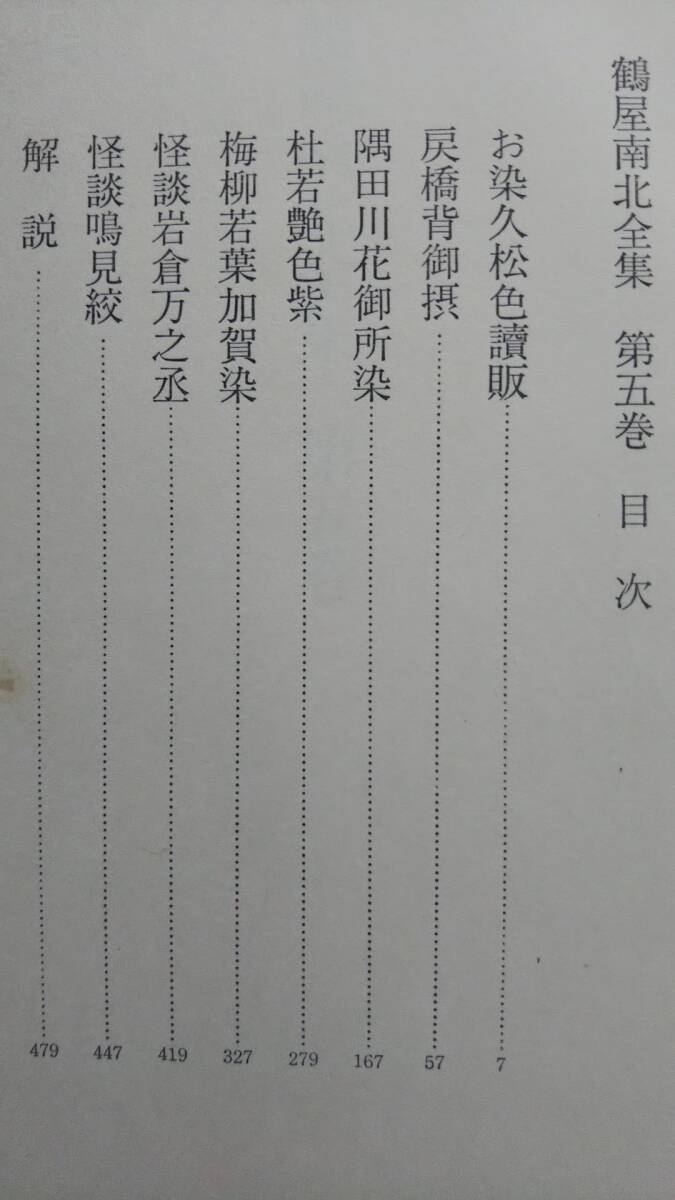 鶴屋南北全集　第五巻　目　次
お染久松色讀販……7
戻橋背御摂……57
隅田川花御所染……167
杜若艶色紫……279
梅柳若葉加賀染……327
怪談岩倉万之丞……419
怪談鳴見絞……447
解　説……479